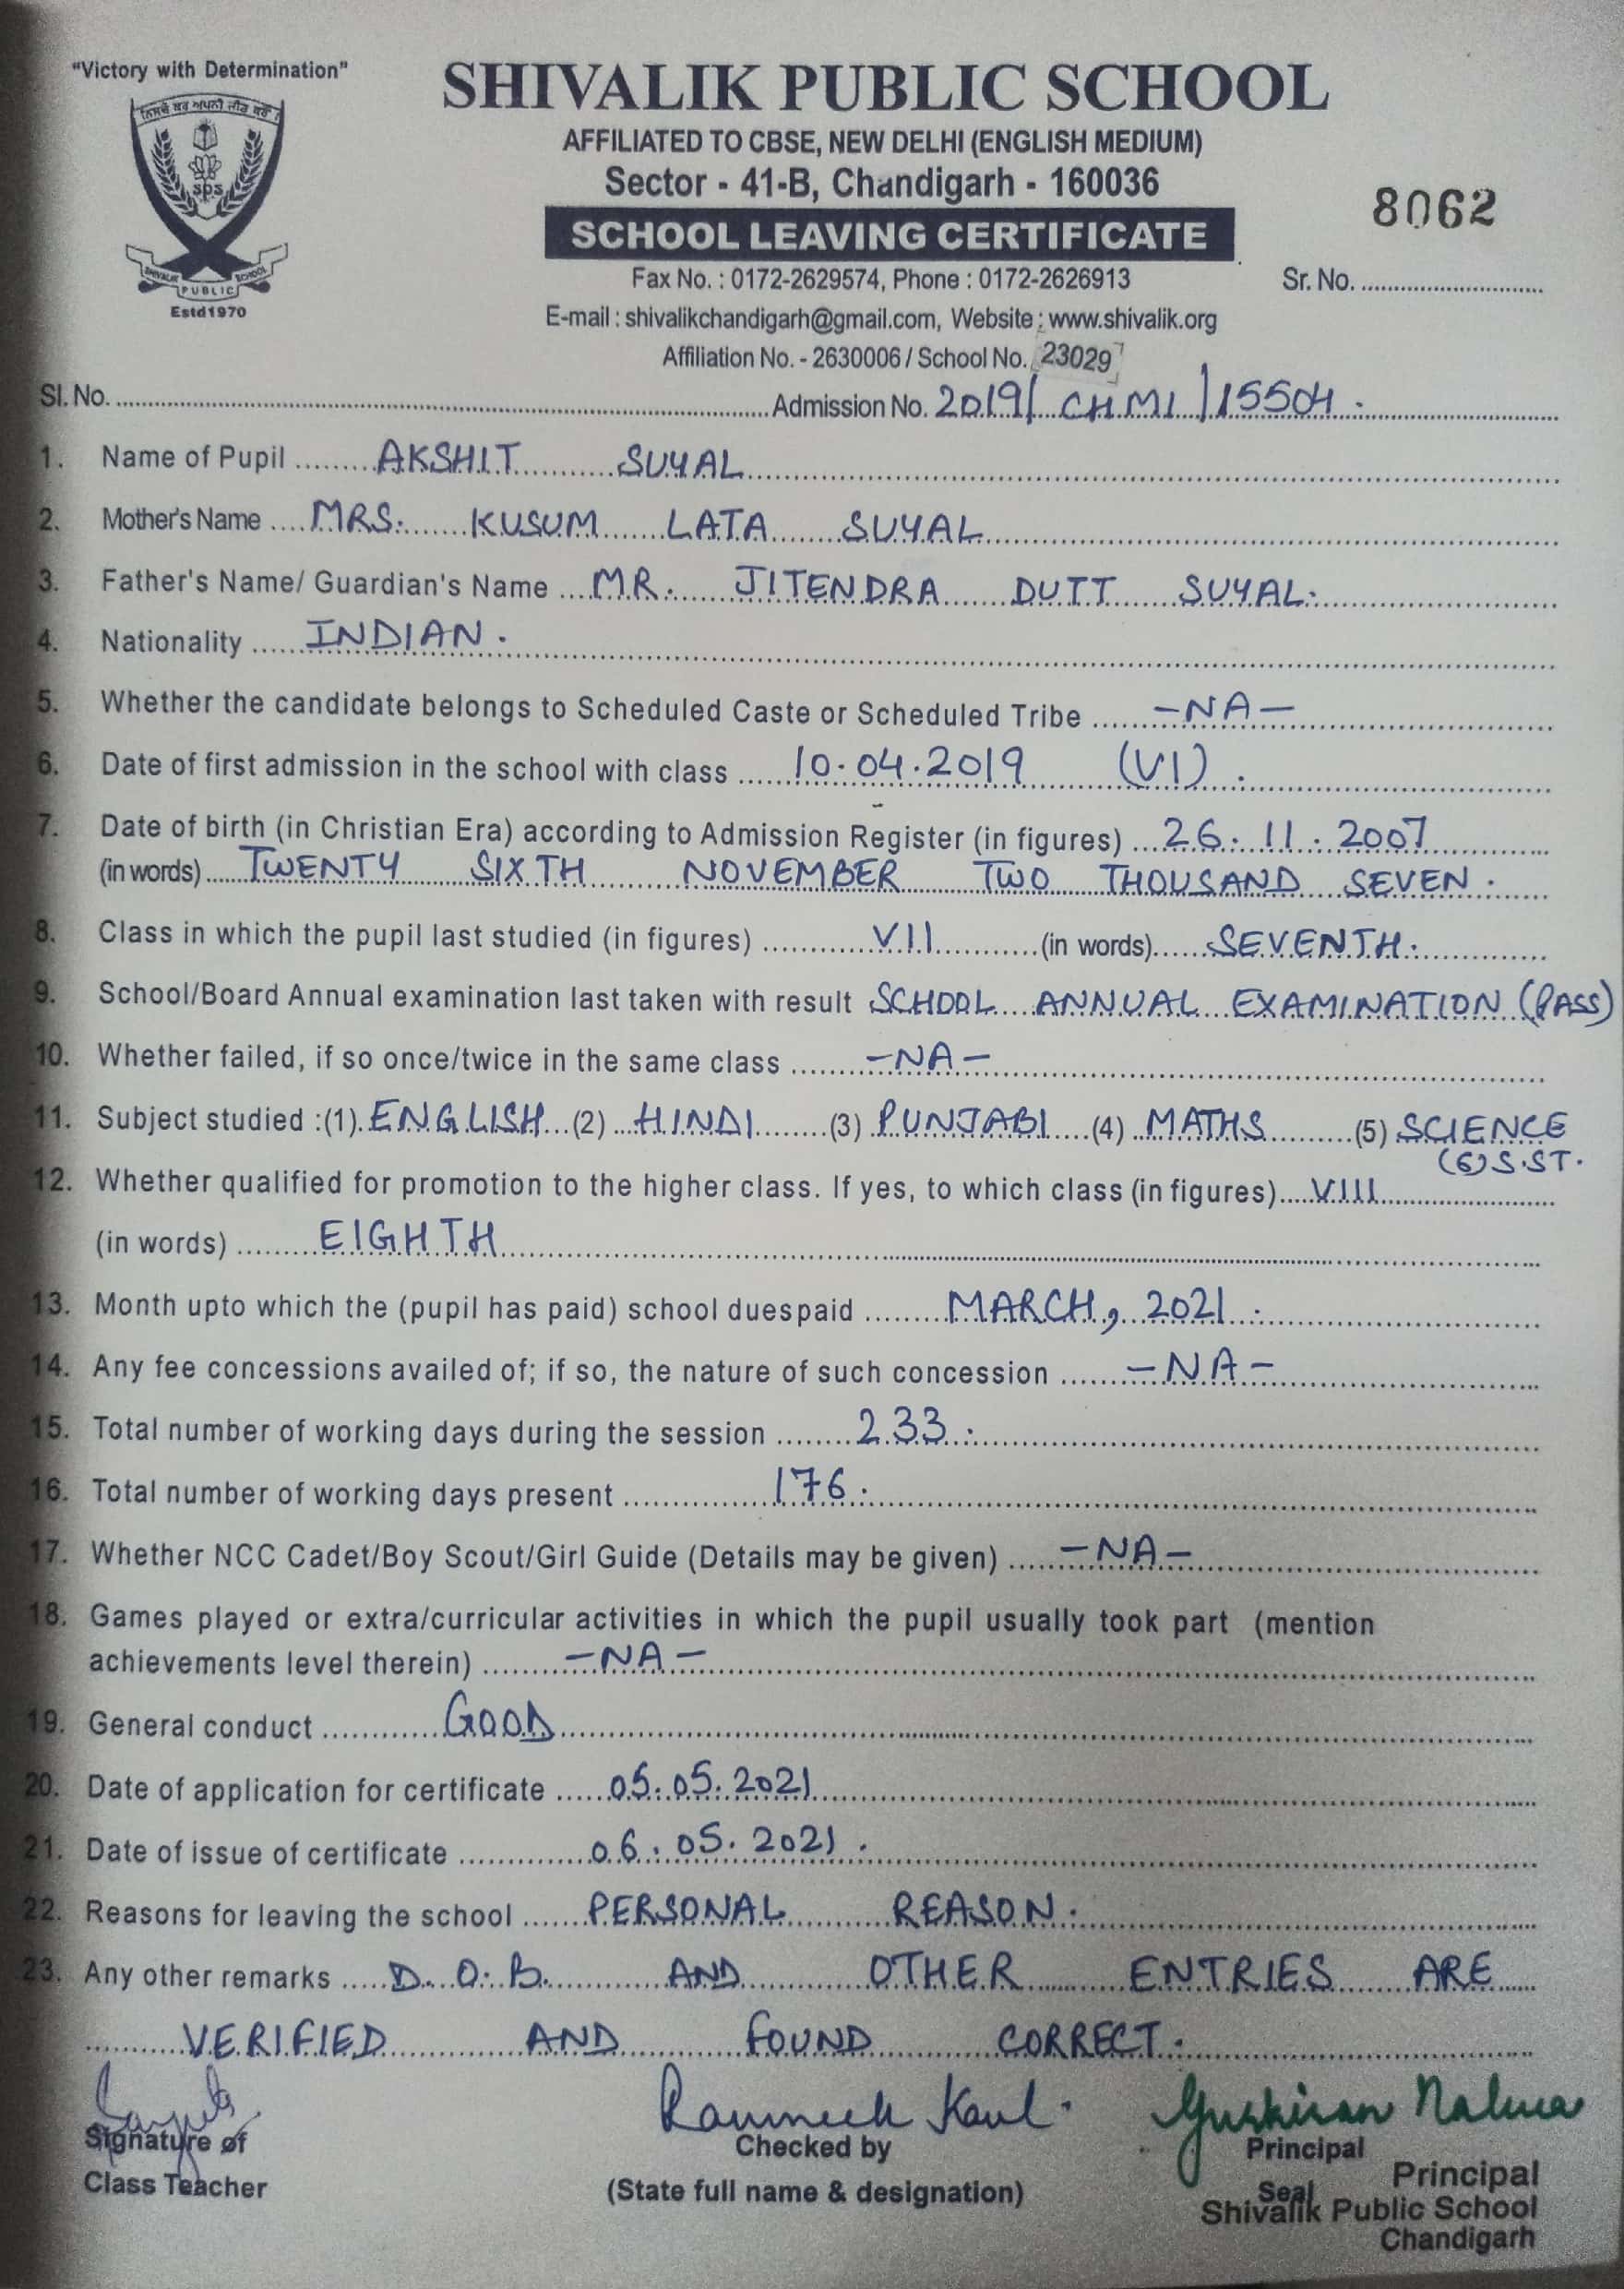 "Victory with Determination"
SHIVALIK PUBLIC SCHOOL
AFFILIATED TO CBSE, NEW DELHI (ENGLISH MEDIUM)
Sector - 41-B, Chandigarh - 160036
8062
SCHOOL LEAVING CERTIFICATE
SPS
SHIVALIK PUBLIC SCHOOL
Estd1970
Fax No. : 0172-2629574, Phone : 0172-2626913
Sr. No.
E-mail : shivalikchandigarh@gmail.com, Website : www.shivalik.org
Affiliation No. - 2630006 / School No. 23029
Sl. No. Admission No. 2019/ CHMI /15504.
1. Name of Pupil AKSHIT SUYAL
2. Mother's Name MRS. KUSUM LATA SUYAL
3. Father's Name/ Guardian's Name MR. JITENDRA DUTT SUYAL.
4. Nationality INDIAN.
5. Whether the candidate belongs to Scheduled Caste or Scheduled Tribe -NA-
6. Date of first admission in the school with class 10.04.2019 (VI).
7. Date of birth (in Christian Era) according to Admission Register (in figures) 26.11.2007
(in words) TWENTY SIXTH NOVEMBER TWO THOUSAND SEVEN.
8. Class in which the pupil last studied (in figures) VII (in words) SEVENTH.
9. School/Board Annual examination last taken with result SCHOOL ANNUAL EXAMINATION (PASS)
10. Whether failed, if so once/twice in the same class -NA-
11. Subject studied :(1). ENGLISH (2) HINDI (3) PUNJABI (4) MATHS (5) SCIENCE
(6) S.ST.
12. Whether qualified for promotion to the higher class. If yes, to which class (in figures) VIII
(in words) EIGHTH
13. Month upto which the (pupil has paid) school duespaid MARCH, 2021.
14. Any fee concessions availed of; if so, the nature of such concession -NA-
15. Total number of working days during the session 233.
16. Total number of working days present 176.
17. Whether NCC Cadet/Boy Scout/Girl Guide (Details may be given) -NA-
18. Games played or extra/curricular activities in which the pupil usually took part (mention
achievements level therein) -NA-
19. General conduct GOOD
20. Date of application for certificate 05.05.2021
21. Date of issue of certificate 06.05.2021.
22. Reasons for leaving the school PERSONAL REASON.
23. Any other remarks D.O.B. AND OTHER ENTRIES ARE
VERIFIED AND FOUND CORRECT.
Kaul. Gurkiran Nalwa
Signature of Checked by Principal
Class Teacher (State full name & designation) Seal
Principal
Shivalik Public School
Chandigarh